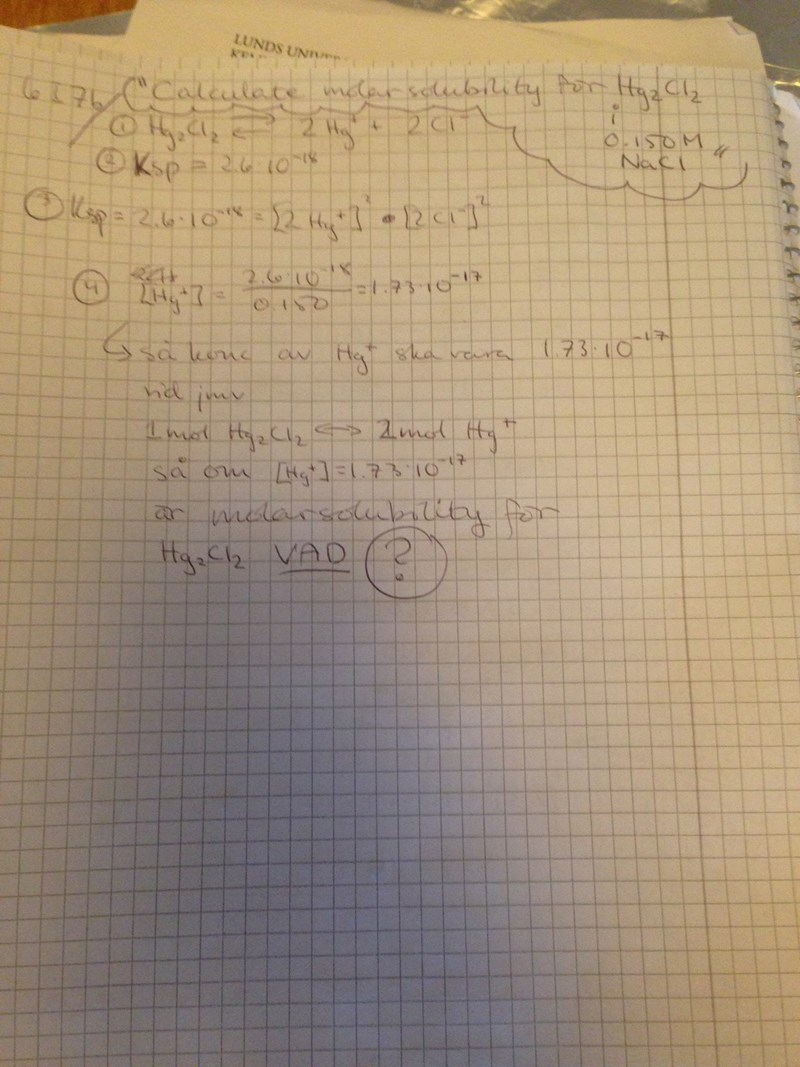 LUNDS UNIVER
6I7b ("Calculate molar solubility för Hg₂Cl₂
i
0.150M
NaCl "
① Hg₂Cl₂ ⇌ 2Hg⁺ + 2Cl⁻
② Ksp = 2.6·10⁻¹⁸
③ Ksp = 2.6·10⁻¹⁸ = [2Hg⁺]² • [2Cl⁻]²
④ [Hg⁺] = 2.6·10⁻¹⁸ / 0.150 = 1.73·10⁻¹⁷
↳ så konc av Hg⁺ ska vara 1.73·10⁻¹⁷
vid jmv
1mol Hg₂Cl₂ ↔ 2mol Hg⁺
så om [Hg⁺] = 1.73·10⁻¹⁷
är molarsolubility för
Hg₂Cl₂ VAD ?